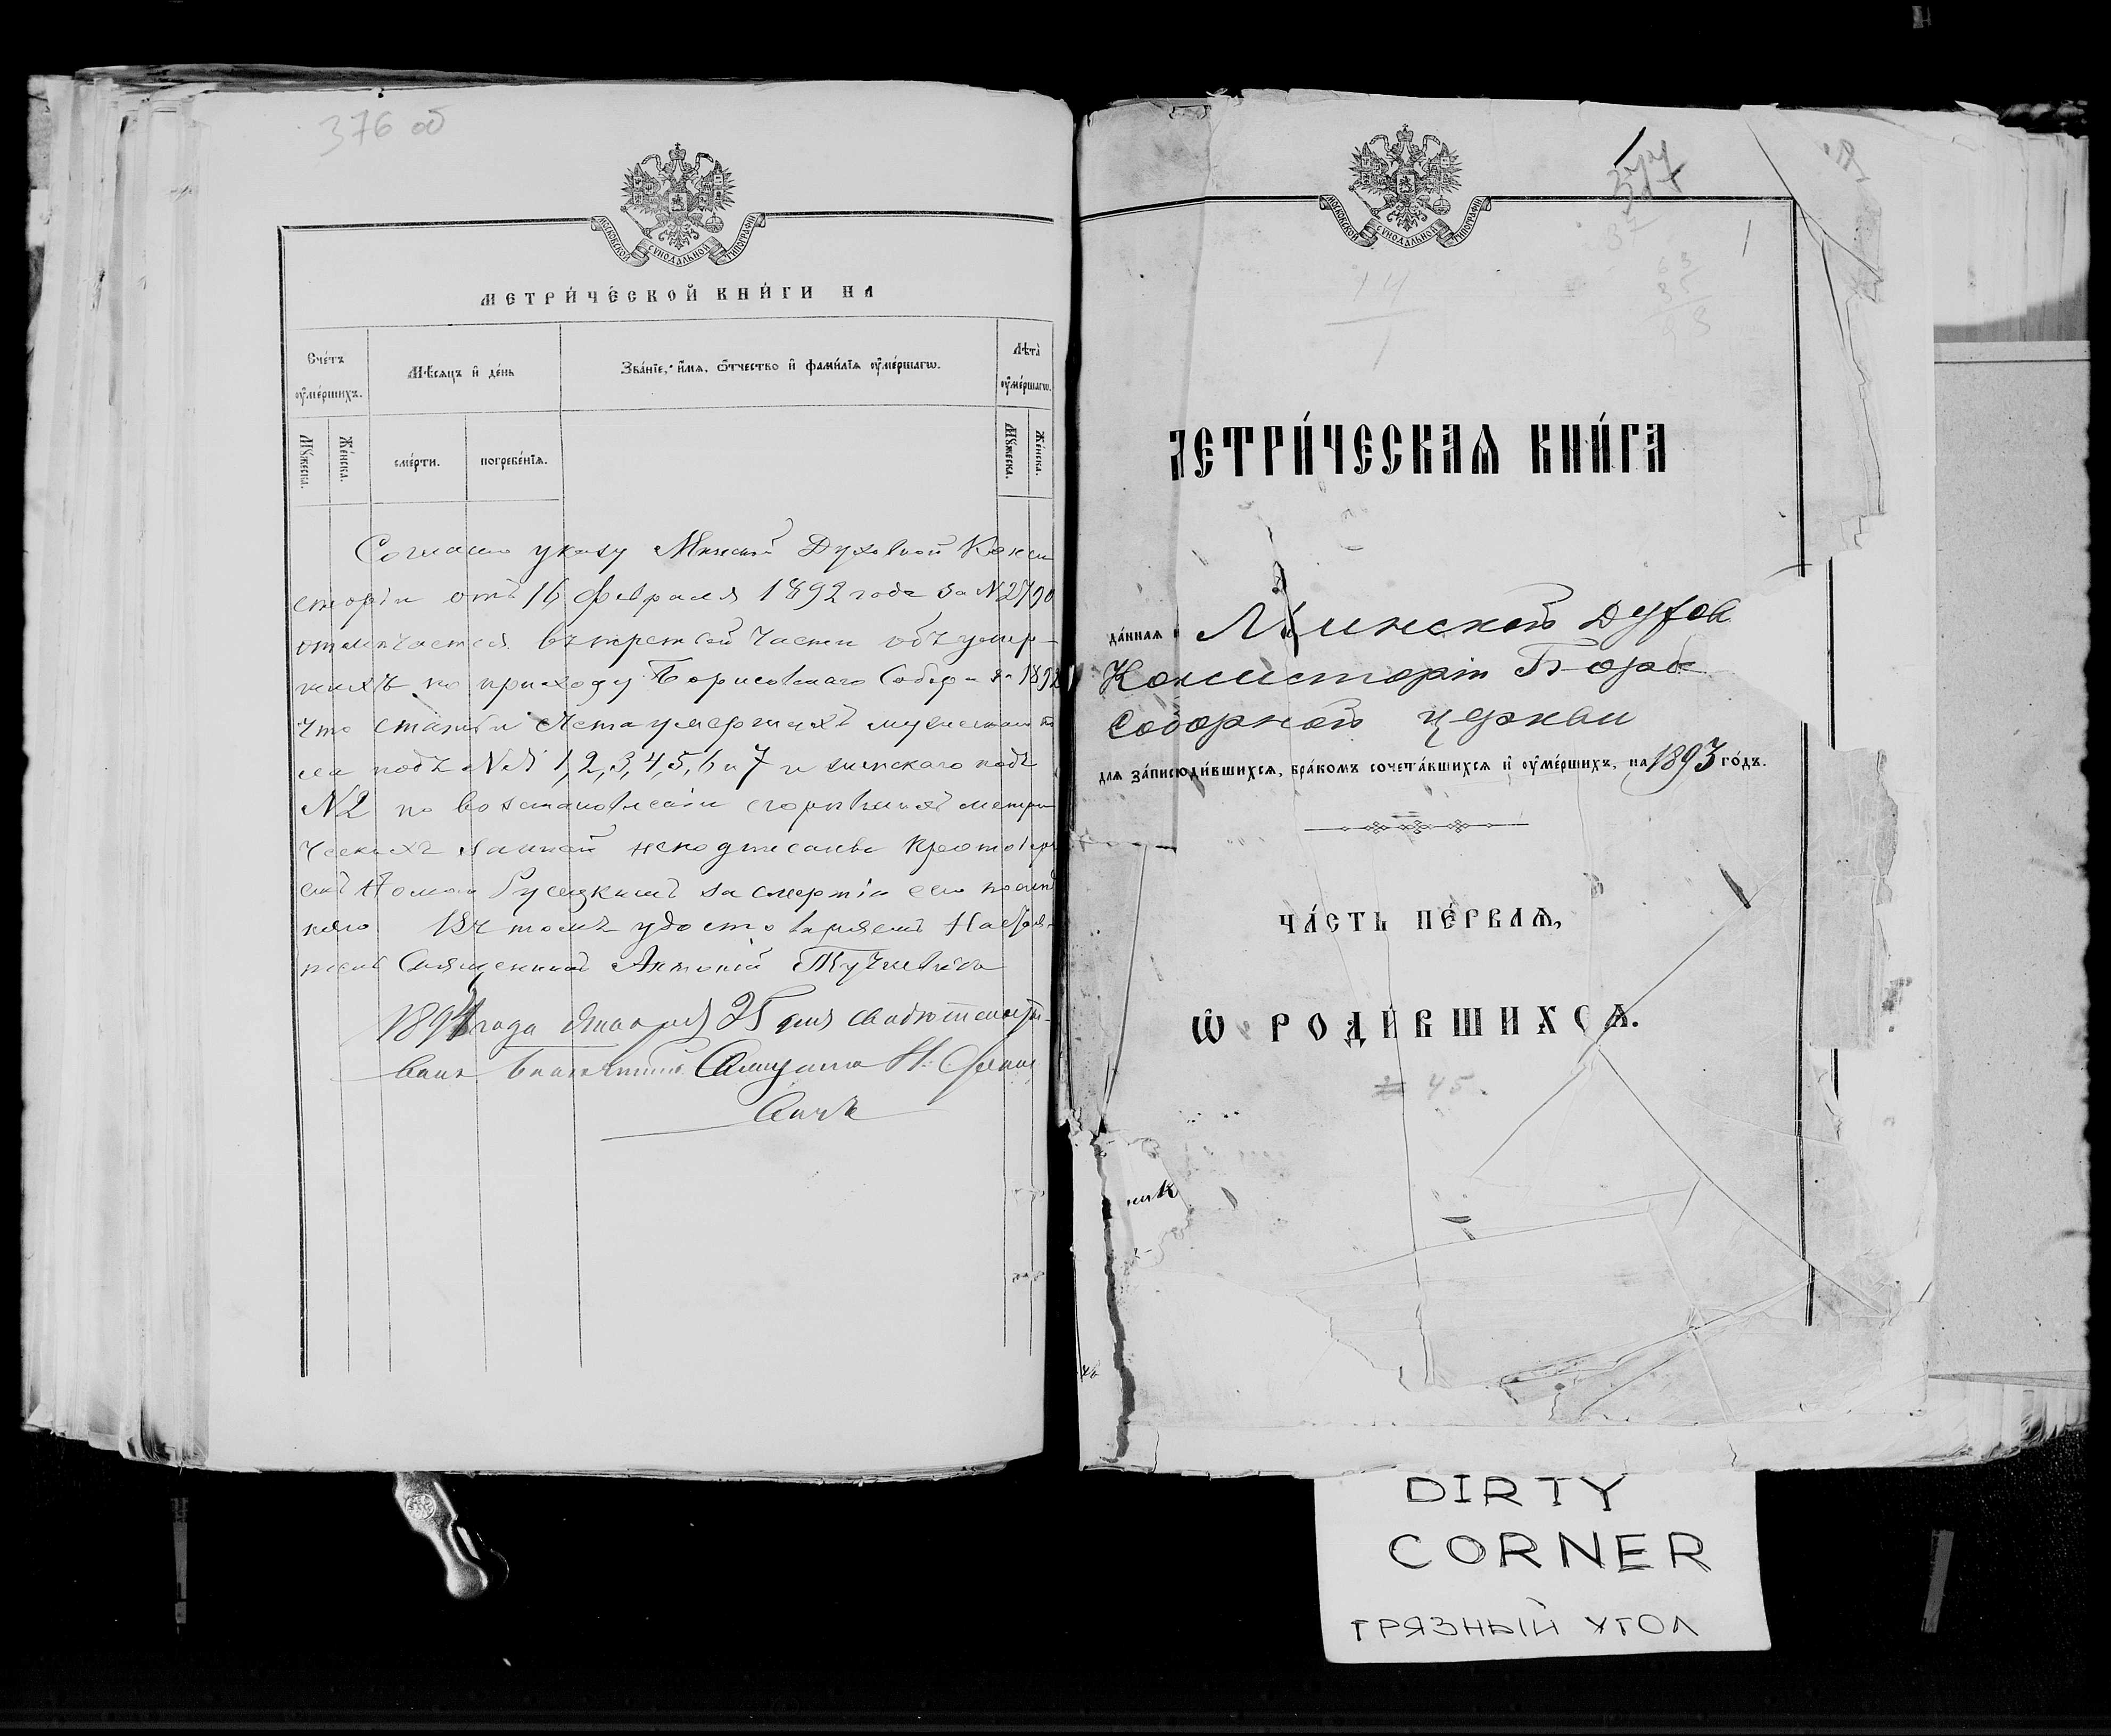 376 об
МОСКОВСКОЙ СѴНОДАЛЬНОЙ ТИПОГРАФІИ
МЕТРИ́ЧЕСКОЙ КНИ́ГИ НА
Сче́тъ ᲂу҆ме́ршихъ.
Мѣ́сяцъ и҆ де́нь
Зва́нїе, и҆́мѧ, ѻ҆́тчество и҆ фами́лїѧ ᲂу҆ме́ршагѡ.
Лѣта̀ ᲂу҆ме́ршагѡ.
Мꙋ́жеска.
Же́нска.
сме́рти.
погребе́нїѧ.
Мꙋ́жеска.
Же́нска.
Согласно указу Минской Духовной Конси
сторіи отъ 16 Февраля 1892 года за №
отмѣчается въ третьей части объ умер-
шихъ по приходу Борисовскаго Собора за 1892
что статьи счета умершихъ мужескаго по
ла подъ №№ 1, 2, 3, 4, 5, 6 и 7 и женскаго подъ
№2 по возстановленіи сгорѣвшихъ метри
ческихъ записей неподписаны Протоіере
емъ Ѳомою Русецкимъ за смертію его послѣд
няго Въ томъ удостовѣряетъ Настоя-
тель Священникъ Антоній
года Января 25 дня свидѣтельст-
МОСКОВСКОЙ СѴНОДАЛЬНОЙ ТИПОГРАФІИ
1
ЕТРИ́ЧЕСКАѦ КНИ́ГА
да́ннаѧ Минской Духов
Консисторіи
Соборной церкви
для за́писи роди́вшихсѧ, бра́комъ сочета́вшихсѧ и҆ ᲂу҆ме́ршихъ, на 1893 го́дъ.
ЧА́СТЬ ПЕ́РВАѦ,
Ѡ҆ РОДИ́ВШИХСѦ.
45.
DIRTY
CORNER
ГРЯЗНЫЙ УГОЛ